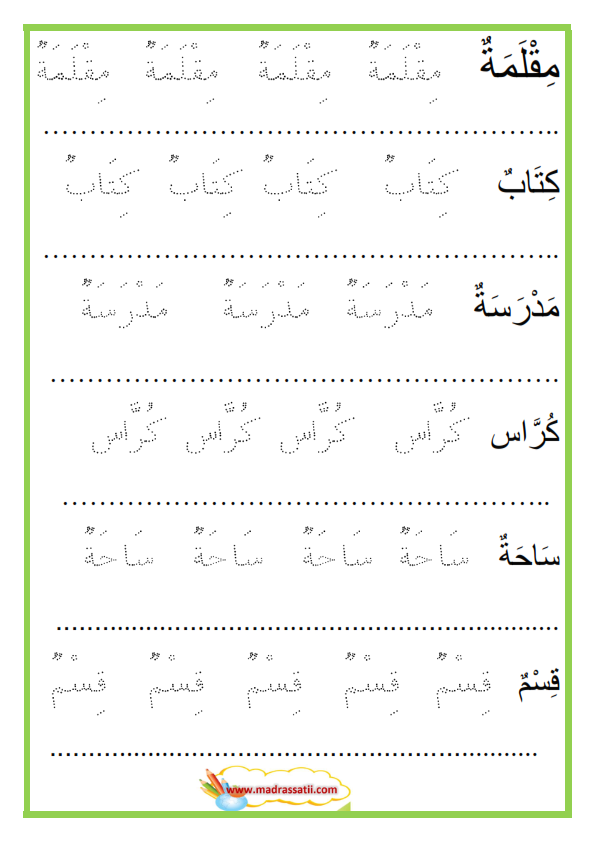 مِقْلَمَةٌ مِقْلَمَةٌ مِقْلَمَةٌ مِقْلَمَةٌ مِقْلَمَةٌ
كِتَابٌ كِتَابٌ كِتَابٌ كِتَابٌ كِتَابٌ
مَدْرَسَةٌ مَدْرَسَةٌ مَدْرَسَةٌ مَدْرَسَةٌ
كُرَّاس كُرَّاس كُرَّاس كُرَّاس كُرَّاس
سَاحَةٌ سَاحَةٌ سَاحَةٌ سَاحَةٌ سَاحَةٌ
قِسْمٌ قِسْمٌ قِسْمٌ قِسْمٌ قِسْمٌ قِسْمٌ
www.madrassatii.com